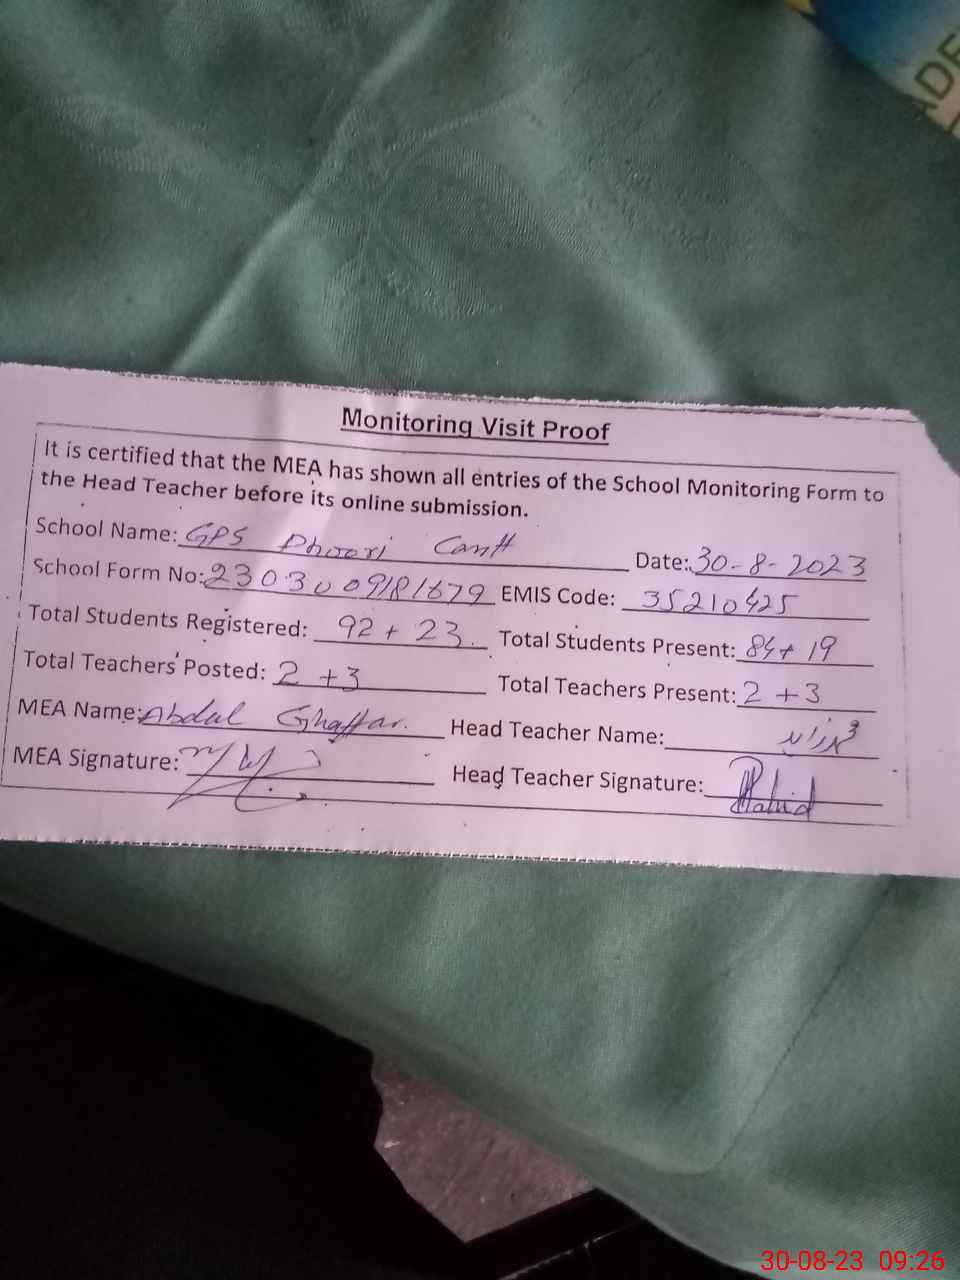 ADE
Monitoring Visit Proof
It is certified that the MEA has shown all entries of the School Monitoring Form to
the Head Teacher before its online submission.
School Name: GPS Dhoori Cantt Date: 30-8-2023
School Form No: 2303009181679 EMIS Code: 35210425
Total Students Registered: 92 + 23 Total Students Present: 84 + 19
Total Teachers Posted: 2 + 3 Total Teachers Present: 2 + 3
MEA Name: Abdul Ghaffar. Head Teacher Name:
MEA Signature: Head Teacher Signature: Zahid
30-08-23 09:26